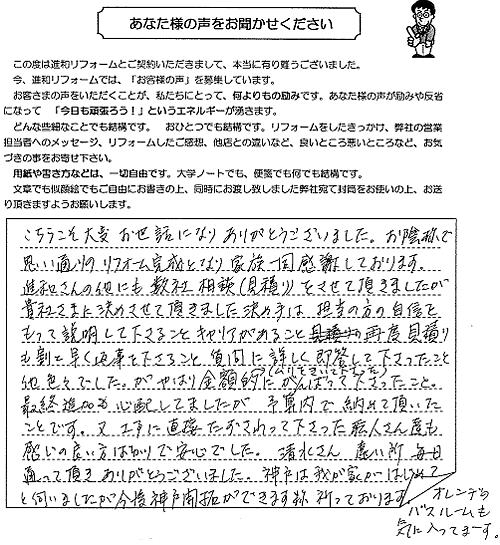 あなた様の声をお聞かせください
この度は進和リフォームとご契約いただきまして、本当に有り難うございました。
今、進和リフォームでは、「お客様の声」を募集しています。
お客さまの声をいただくことが、私たちにとって、何よりもの励みです。あなた様の声が励みや反省
になって 「今日も頑張ろう!」というエネルギーが湧きます。
どんな些細なことでも結構です。 おひとつでも結構です。リフォームをしたきっかけ、弊社の営業
担当者へのメッセージ、リフォームしたご感想、他店との違いなど、良いところ悪いところなど、お気
づきの事をお寄せ下さい。
用紙や書き方などは、一切自由です。大学ノートでも、便箋でも何でも結構です。
文章でも似顔絵でもご自由にお書きの上、同時にお渡し致しました弊社宛て封筒をお使いの上、お送
り頂きますようお願いします。
こちらこそ大変お世話になりありがとうございました。お陰様で
思い通りのリフォーム完成となり家族一同感謝しております。
進和さんの他にも数社相談(見積り)をさせて頂きましたが
貴社さまに決めさせて頂きました決め手は、担当の方の自信を
もって説明して下さること キャリアがあること 再度見積り
も割と早く返事を下さること 質問に詳しく即答して下さったこと
他色々でした。がやはり金額的にがんばって下さったこと。
(ムリをきいて下さって)
最終追加も心配してましたが 予算内で納めて頂いた
ことです。又工事に直接たずさわって下さった職人さん達も
感じの良い方ばかりで安心でした。清水さん 遠い所 毎日
通って頂きありがとうございました。神戸は我が家がはじめて
と伺いましたが今後神戸開拓ができます様 祈っております。
オレンジの
バスルームも
気に入ってまーす。